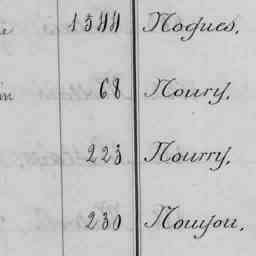 1544 Nogues.
in 68 Noury.
223 Nourry.
230 Nouyou.